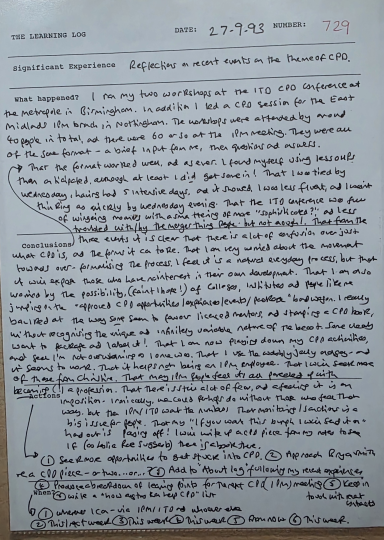 THE LEARNING LOG DATE: 27-9-93 NUMBER: 729
Significant Experience Reflections on recent events on the theme of CPD.
What happened? I ran my two workshops at the ITD CPD conference at
the metropole in Birmingham. In addition I led a CPD session for the East
Midlands IPM branch in Nottingham. The workshops were attended by around
40 people in total, and there were 60 or so at the IPM meeting. They were all
of the same format - a brief input from me, then questions and answers.
That the format worked well, and as ever I found myself using less OHPs
than anticipated, although at least I did get some in! That I was tired by
Wednesday, having had 5 intensive days, and it showed, I was less fluent, and I wasn't
thinking as quickly by Wednesday evening. That the ITD conference was full
of whingeing moments with a smattering of more "sophisticated?", and less
troubled with/by the merger thing. That from the
Conclusions three events it is clear that there is a lot of confusion over just
what CPD is, and the form it can take. That I am very worried about the movement
towards over-formalising the process. I feel it is a natural everyday process, but that
it will expose those who have no interest in their own development. That I am also
worried by the possibility, (faint hope!) of Colleges, institutes and people like me
jumping on the "approved CPD opportunities/experiences/events/package" bandwagon. I really
bawked at the way some seem to favour licensed mentors, and stamping a CPD book,
without recognising the unique and infinitely variable nature of the beast. Some clearly
want to package and label it! That I am now pinging down my CPD activities,
and feel I'm not overweening to some. That I use the weekly/daily and
it seems to work. That it helps not being an IPM employee. That I will see more
of those from Christine. That many IPM people feel
becoming (!) a profession. That there is still a lot of fear, and a feeling it is an
Actions imposition. Ironically, we could perhaps do without those who feel that
way, but the IPM/ITD want the numbers. That monitoring/sanctions is a
big issue for people. That my "If you want this graph I will send it on"
handout is paying off! I will write up a CPD piece for my notes to see
if there is a book there.
① See more opportunities to get stuck into CPD. ② Approach Bryan with
re. a CPD piece - or two... or...! ③ Add to 'About log' following my recent experiences
④ Produce a breakdown of learning points for Target CPD (IPM) meeting ⑤ Keep in
When? ⑥ Write a "how are you to help CPD" list touch with recent contacts
① whenever I can - via IPM/ITD and whoever else
② This/next week ③ This week ④ This week ⑤ From now ⑥ This week.